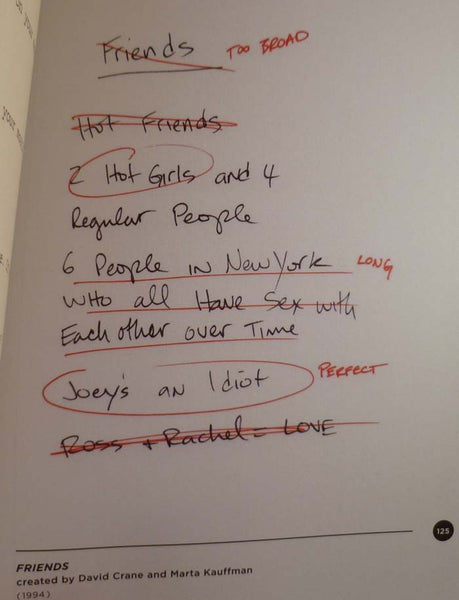 Friends TOO BROAD
Hot Friends
2 Hot Girls and 4
Regular People
6 People in New York LONG
who all Have Sex with
Each other over Time
Joey's an Idiot PERFECT
Ross + Rachel = LOVE
125
FRIENDS
created by David Crane and Marta Kauffman
(1994)